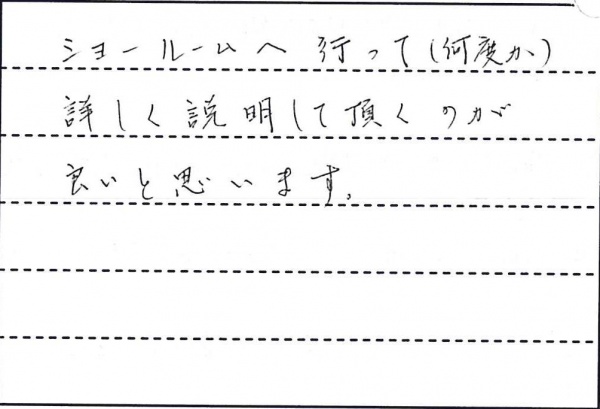 ショールームへ 行って(何度か)
詳しく説明して頂くのが
良いと思います。